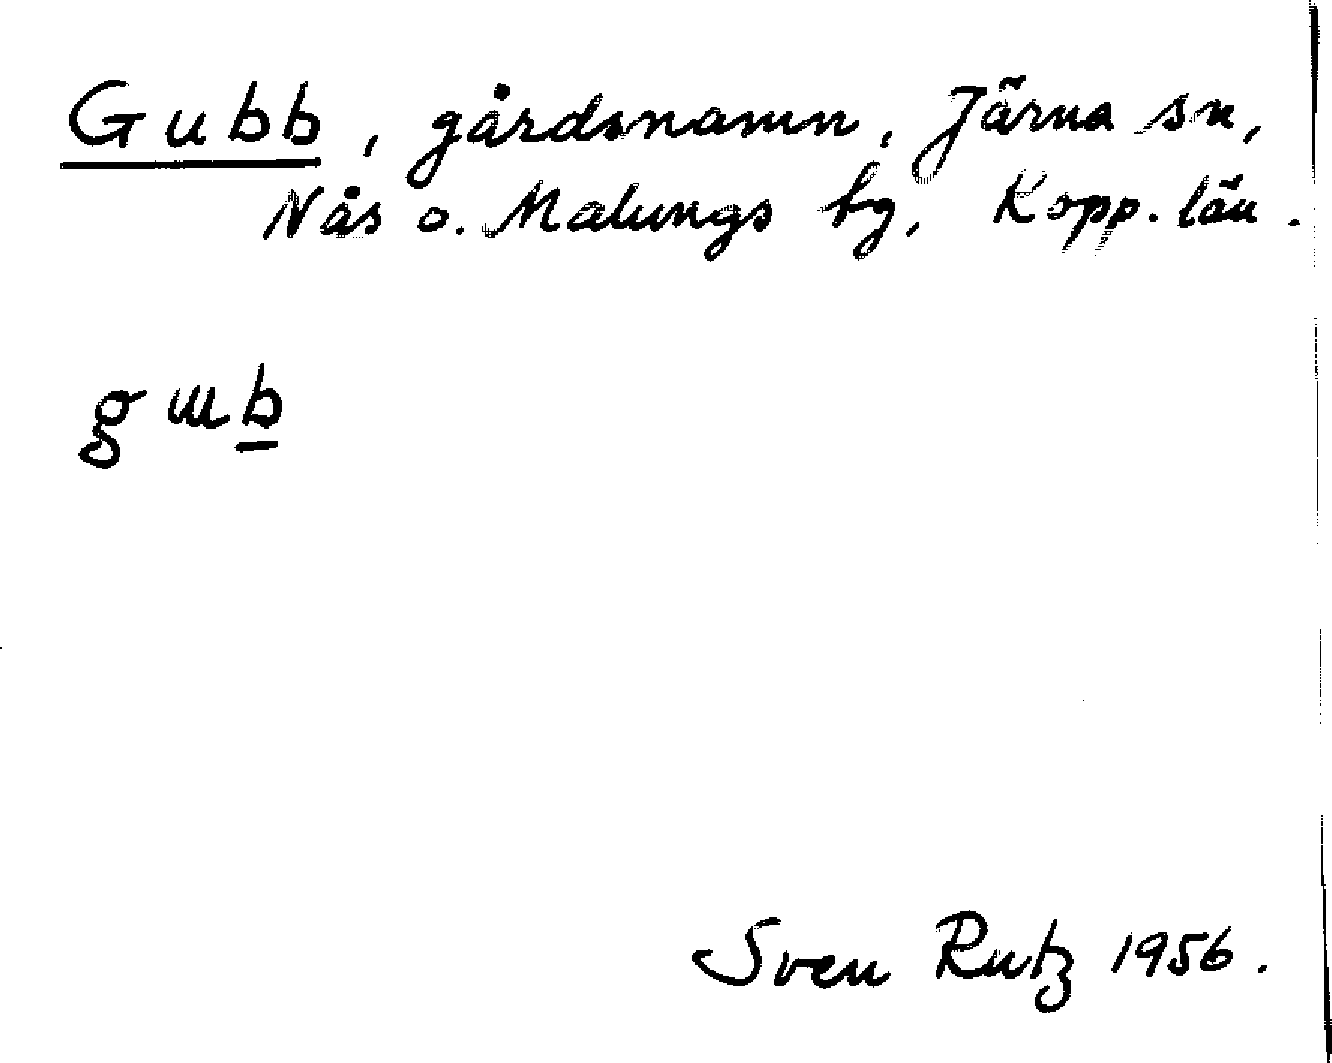 Gubb, gårdsnamn, Järna sn,
Nås o. Malungs tg, Kopp. län.
gɯb
Sven Rutz 1956.